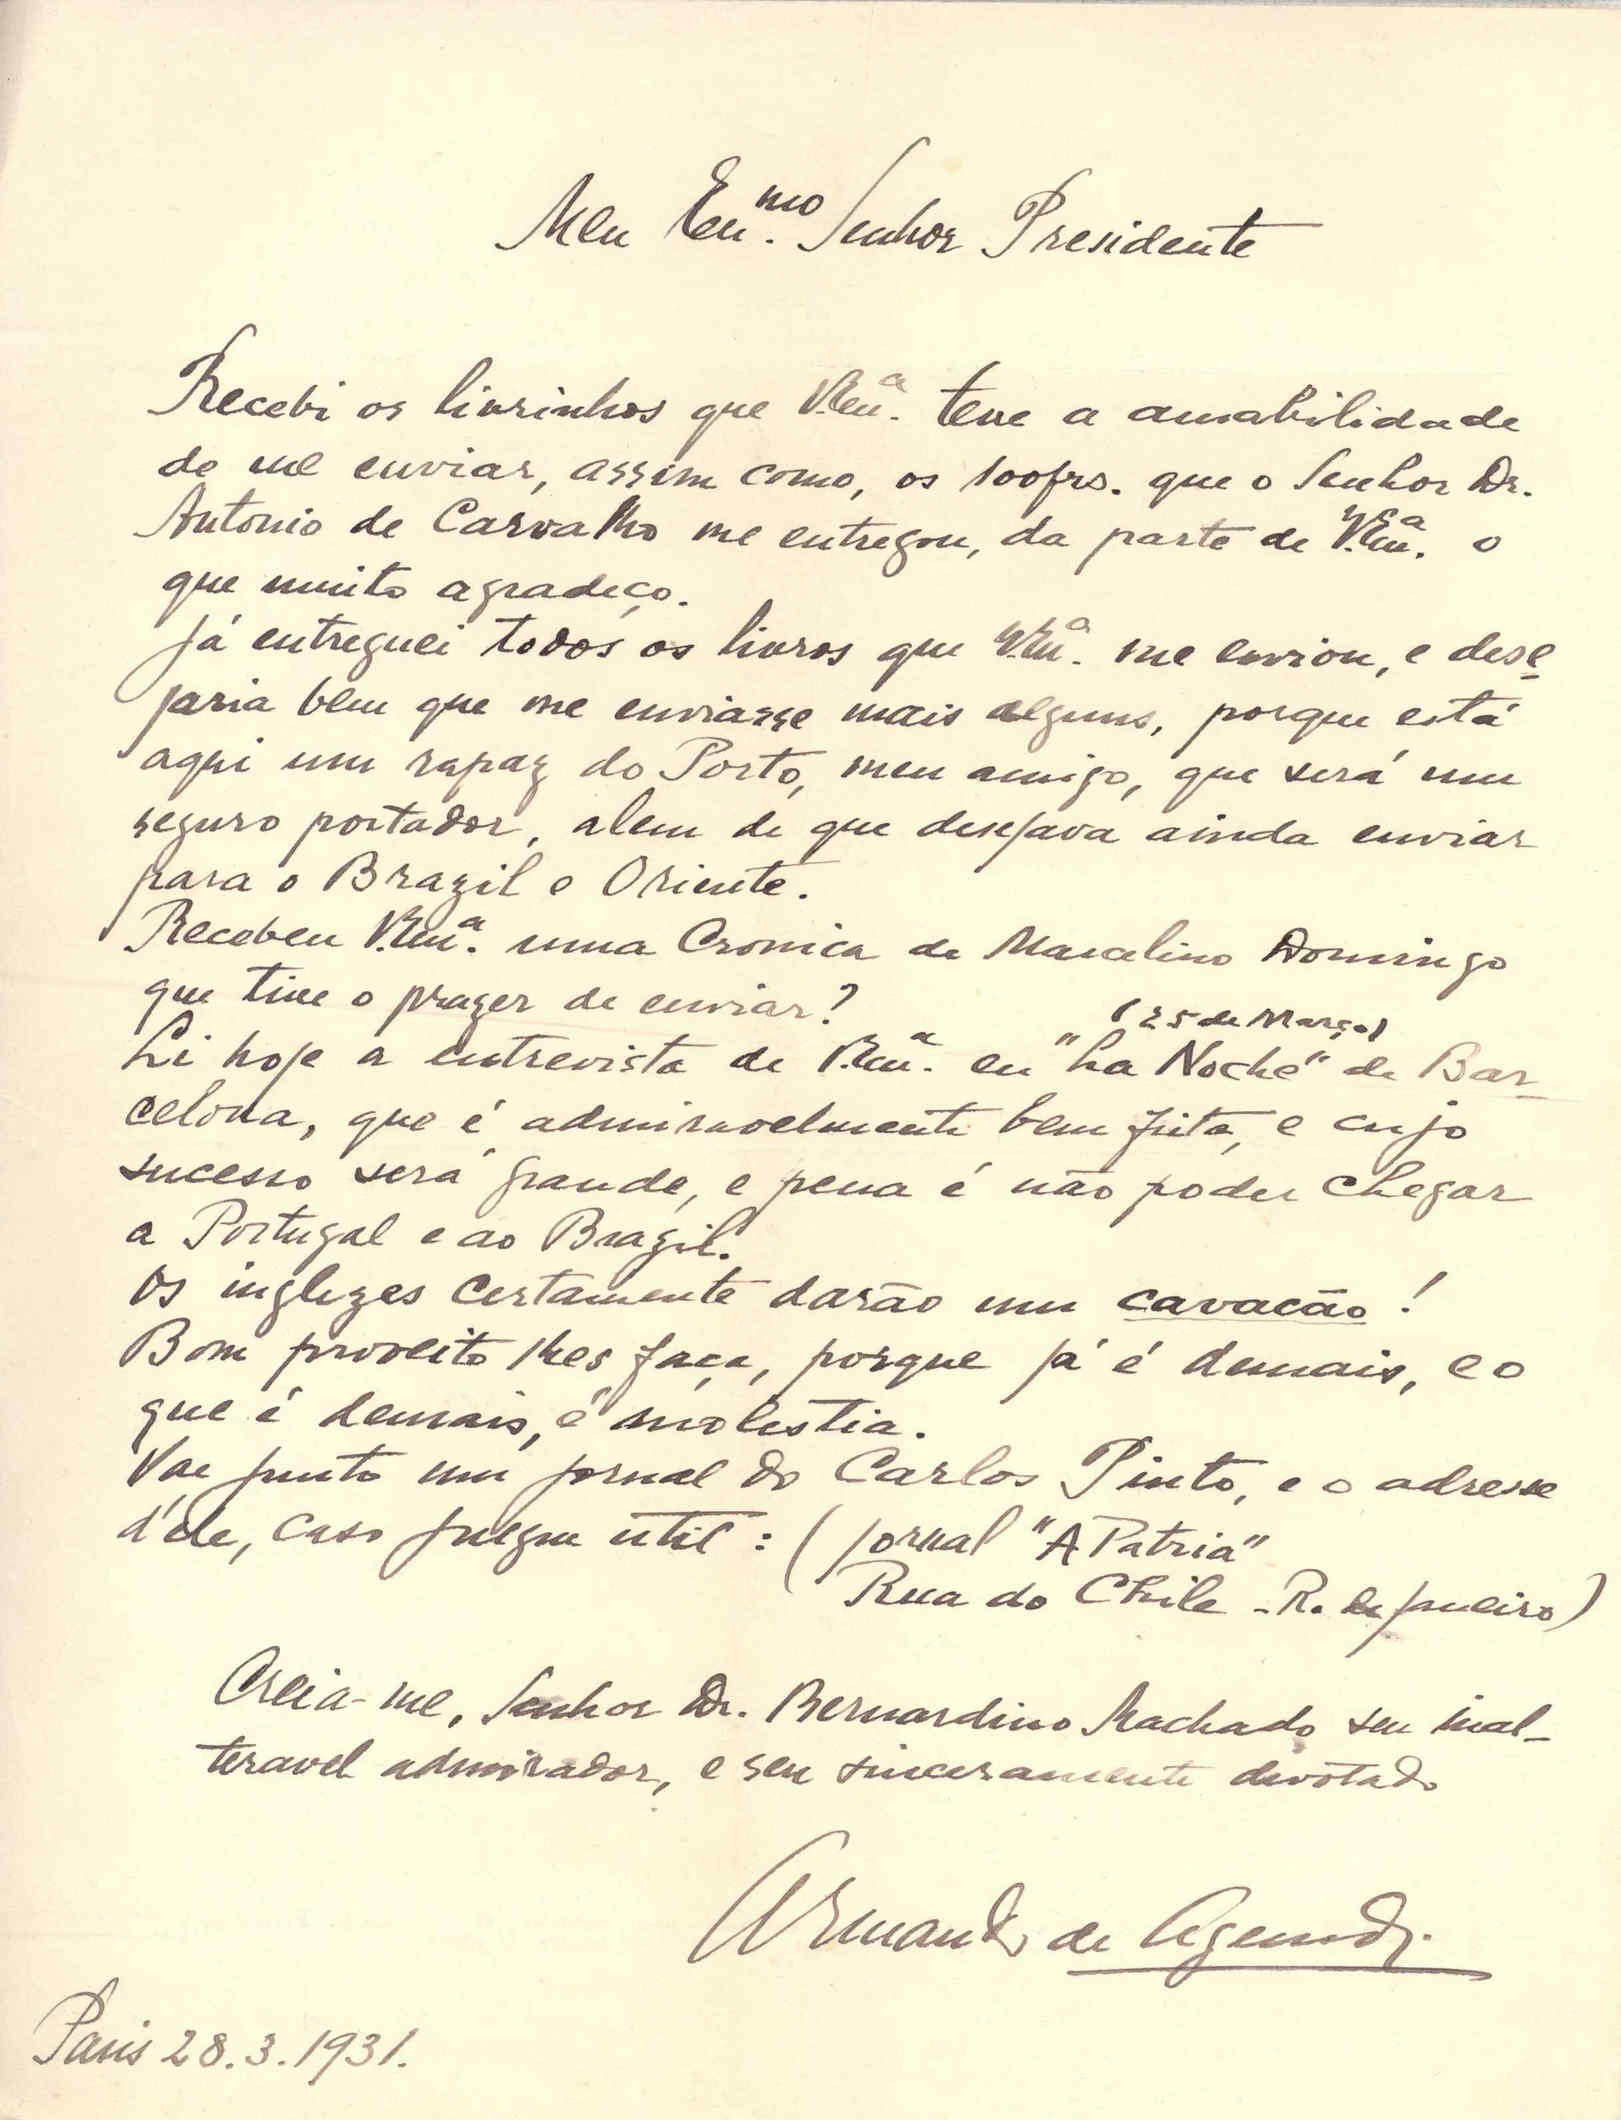 Meu Exm.mo Senhor Presidente
Recebi os livrinhos que V.Exa. teve a amabilidade
de me enviar, assim como, os 100frs. que o Senhor Dr.
Antonio de Carvalho me entregou, da parte de V.Exa. o
que muito agradeço.
Já entreguei todos os livros que V.Exa. me enviou, e dese
jaria bem que me enviasse mais alguns, porque está
aqui um rapaz do Porto, meu amigo, que será um
seguro portador, alem de que desejava ainda enviar
para o Brazil e Oriente.
Recebeu V.Exa. uma Cronica de Marcelino Domingo
que tive o prazer de enviar?
(25 de Março)
Li hoje a entrevista de V.Exa. em "La Noche" de Bar-
celona, que é admiravelmente bem feita, e cujo
sucesso será grande, e pena é não poder chegar
a Portugal e ao Brazil.
Os inglezes certamente darão um cavacão!
Bom proveito lhes faça, porque já é demais, e o
que é demais, é molestia.
Vae junto um jornal do Carlos Pinto, e o adresse
d'ele, caso julgue util: (jornal "A Patria"
Rua do Chile - R. de Janeiro)
Creia-me, Senhor Dr. Bernardino Machado seu inal-
teravel admirador, e seu sinceramente devotado
Armando de
Paris 28.3.1931.